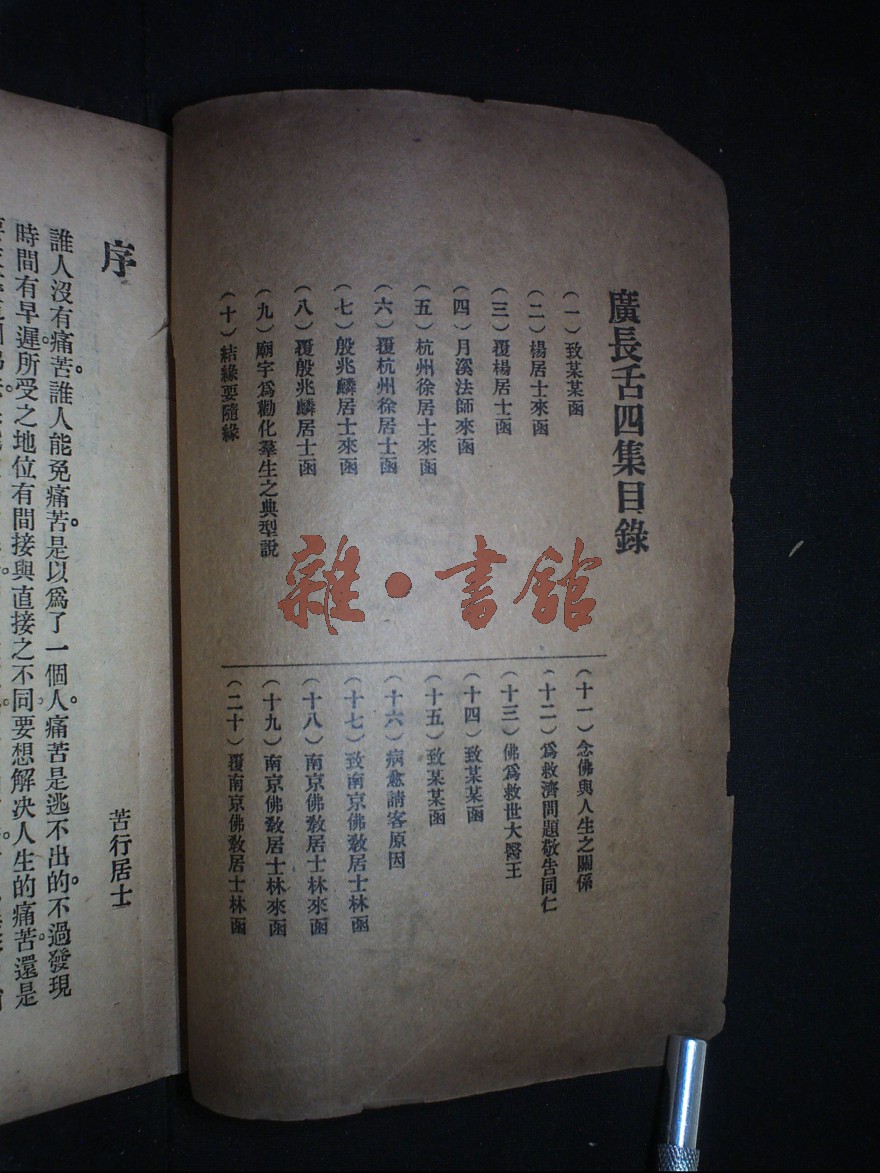 廣長舌四集目錄
(一)致某某函
(二)楊居士來函
(三)覆楊居士函
(四)月溪法師來函
(五)杭州徐居士來函
(六)覆杭州徐居士函
(七)殷兆麟居士來函
(八)覆殷兆麟居士函
(九)廟宇爲勸化羣生之典型說
(十)結緣要隨緣
(十一)念佛與人生之關係
(十二)爲救濟問題敬告同仁
(十三)佛爲救世大醫王
(十四)致某某函
(十五)致某某函
(十六)病愈請客原因
(十七)致南京佛敎居士林函
(十八)南京佛敎居士林來函
(十九)南京佛敎居士林來函
(二十)覆南京佛敎居士林函
雜·書館
序
苦行居士
誰人沒有痛苦。誰人能免痛苦。是以爲了一個人。痛苦是逃不出的。不過發現
時間有早遲。所受之地位有間接與直接之不同。要想解決人生的痛苦。還是